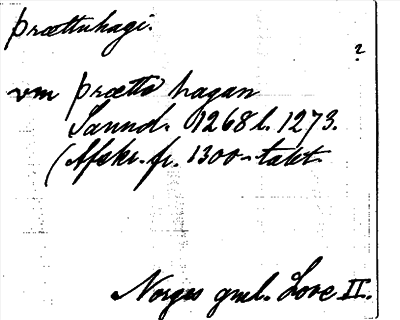 Þrættuhagi.
?
um þrætto hagan
Sannd. 1268 l. 1273.
(Afskr. fr. 1300-talet.
Norges gml. Love II.